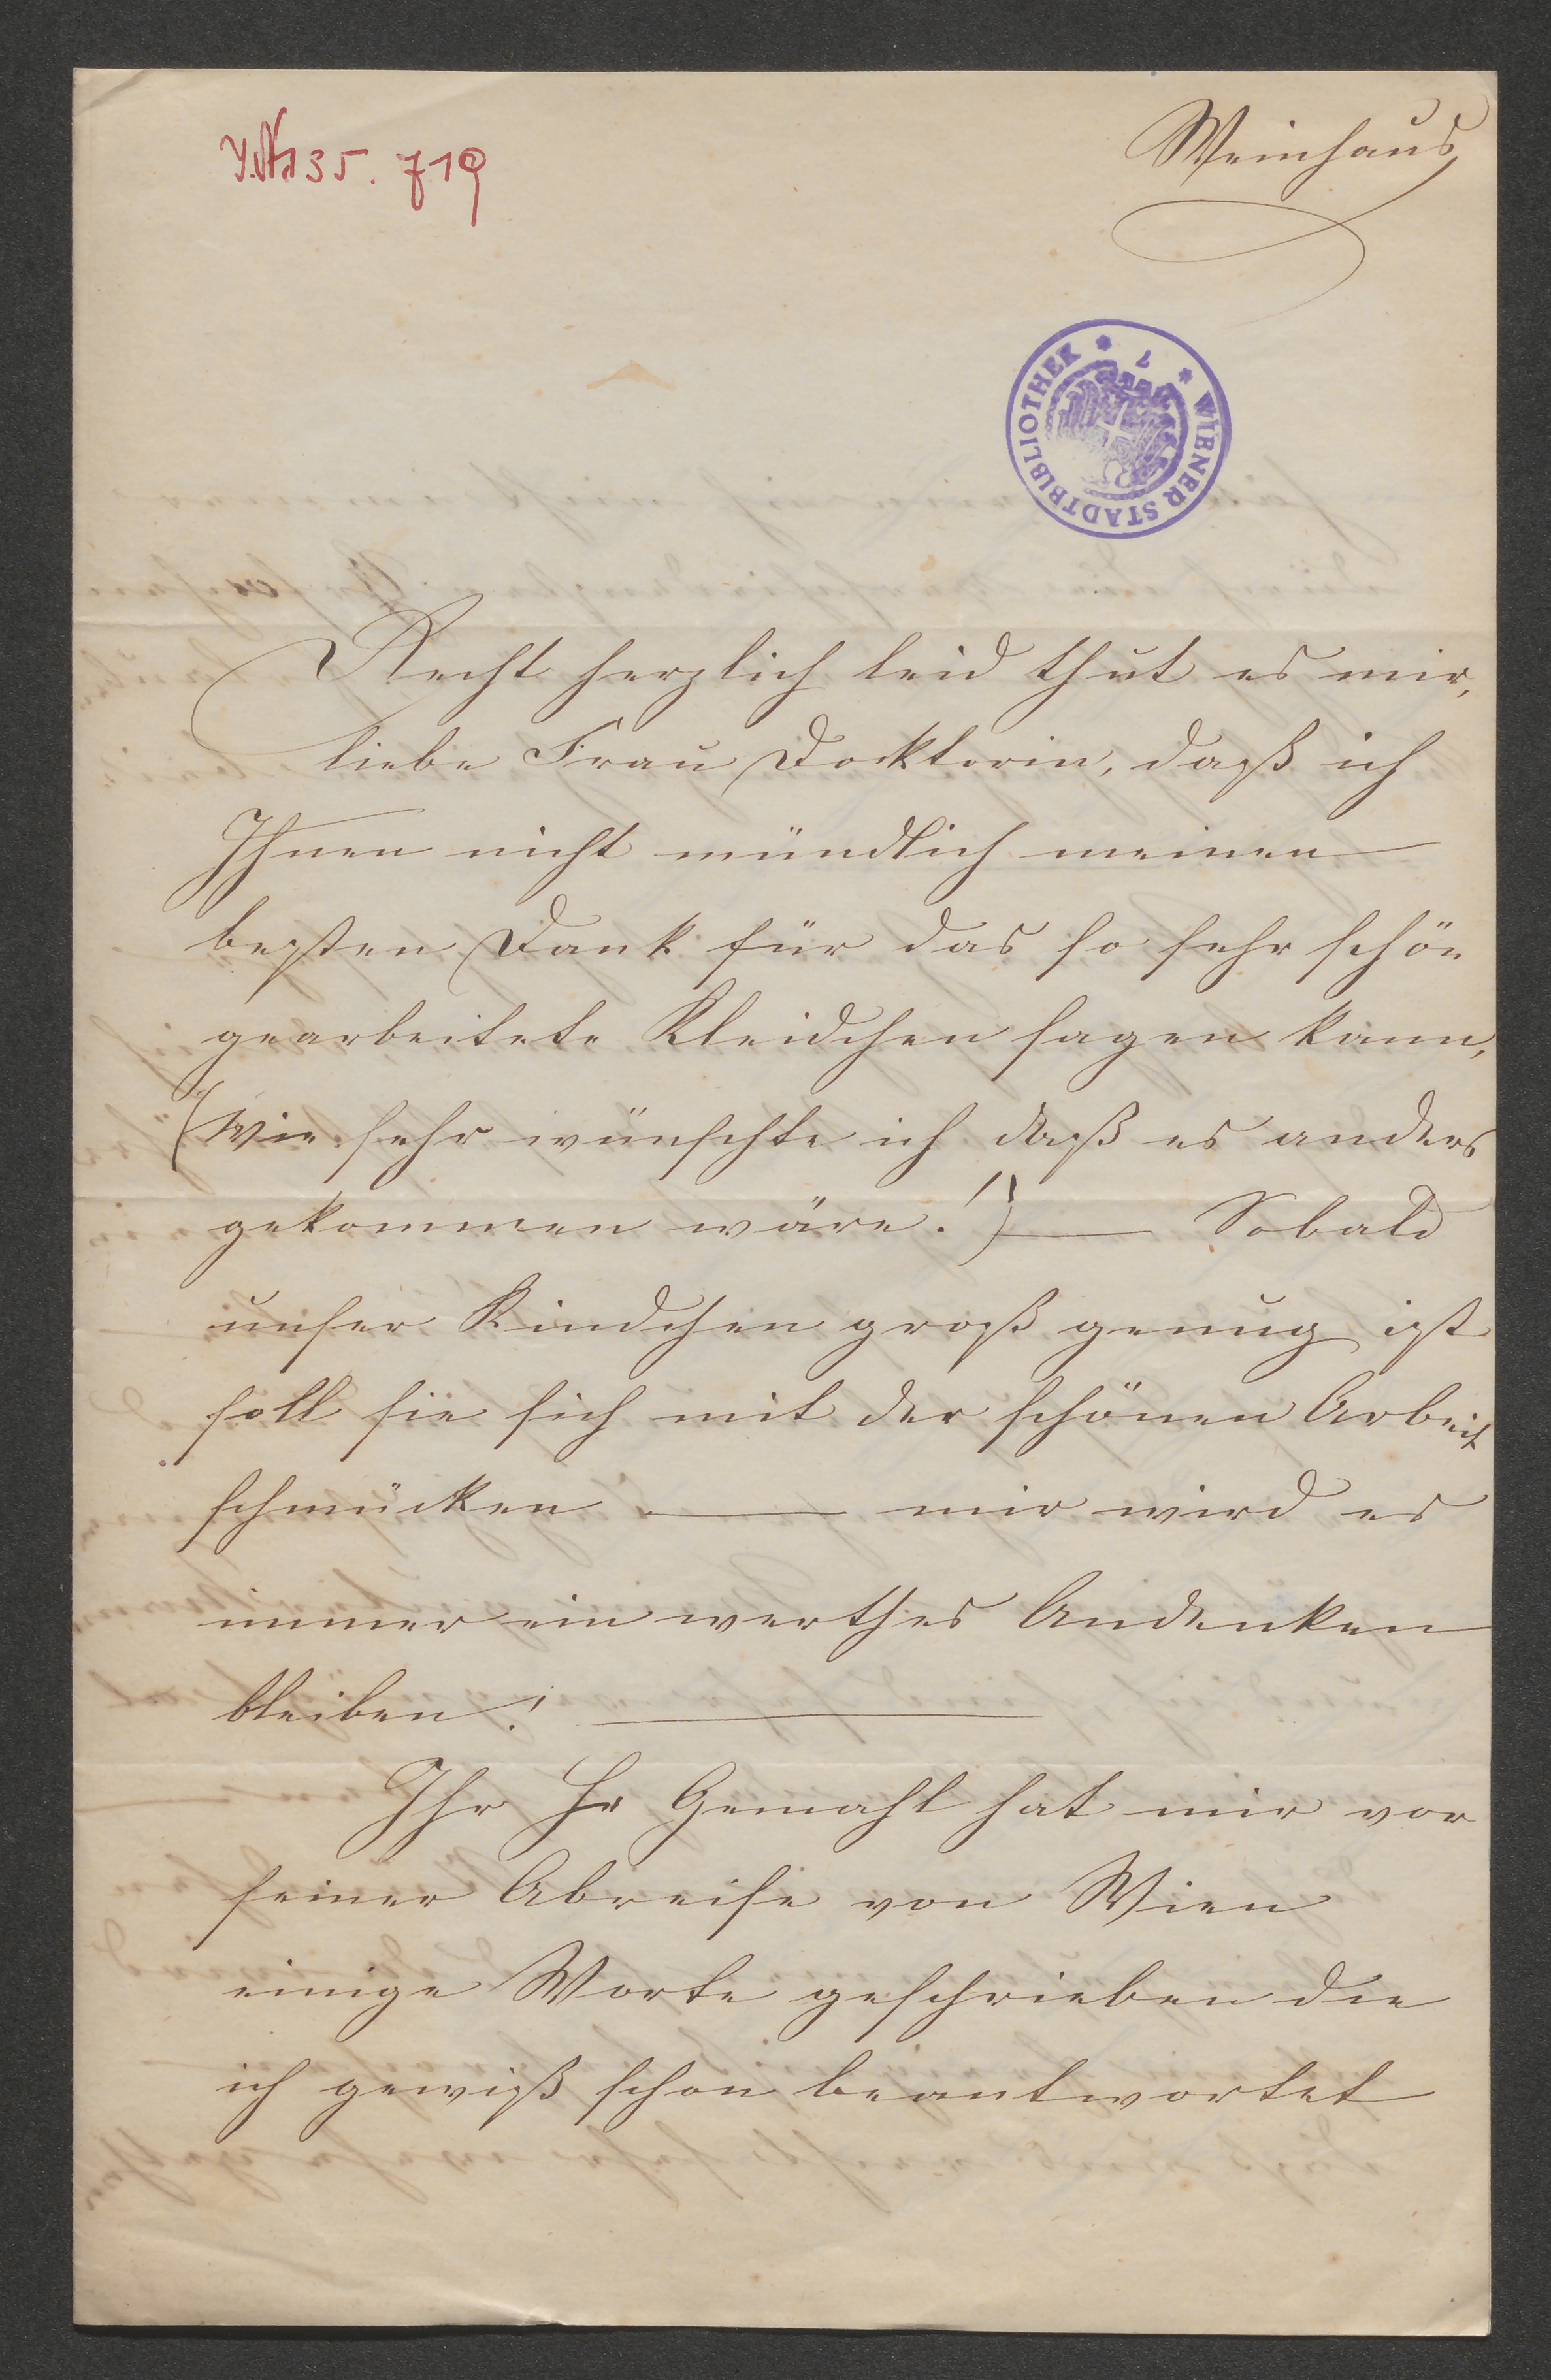 J.Nr 35.719
Weinhaus
* WIENER STADTBIBLIOTHEK * 1
Recht herzlich leid thut es mir,
liebe Frau Docktorin, daß ich
Ihnen nicht mündlich meinen
besten Dank für das so sehr schön
gearbeitete Kleidchen sagen kann,
(Wie sehr wünschte ich daß es anders
gekommen wäre!) — Sobald
unser Kindchen groß genug ist
soll sie sich mit der schönen Arbeit
schmücken — mir wird es
immer ein werthes Andenken
bleiben! —
Ihr Hr Gemahl hat mir vor
seiner Abreise von Wien
einige Worte geschrieben die
ich gewiß schon beantwortet